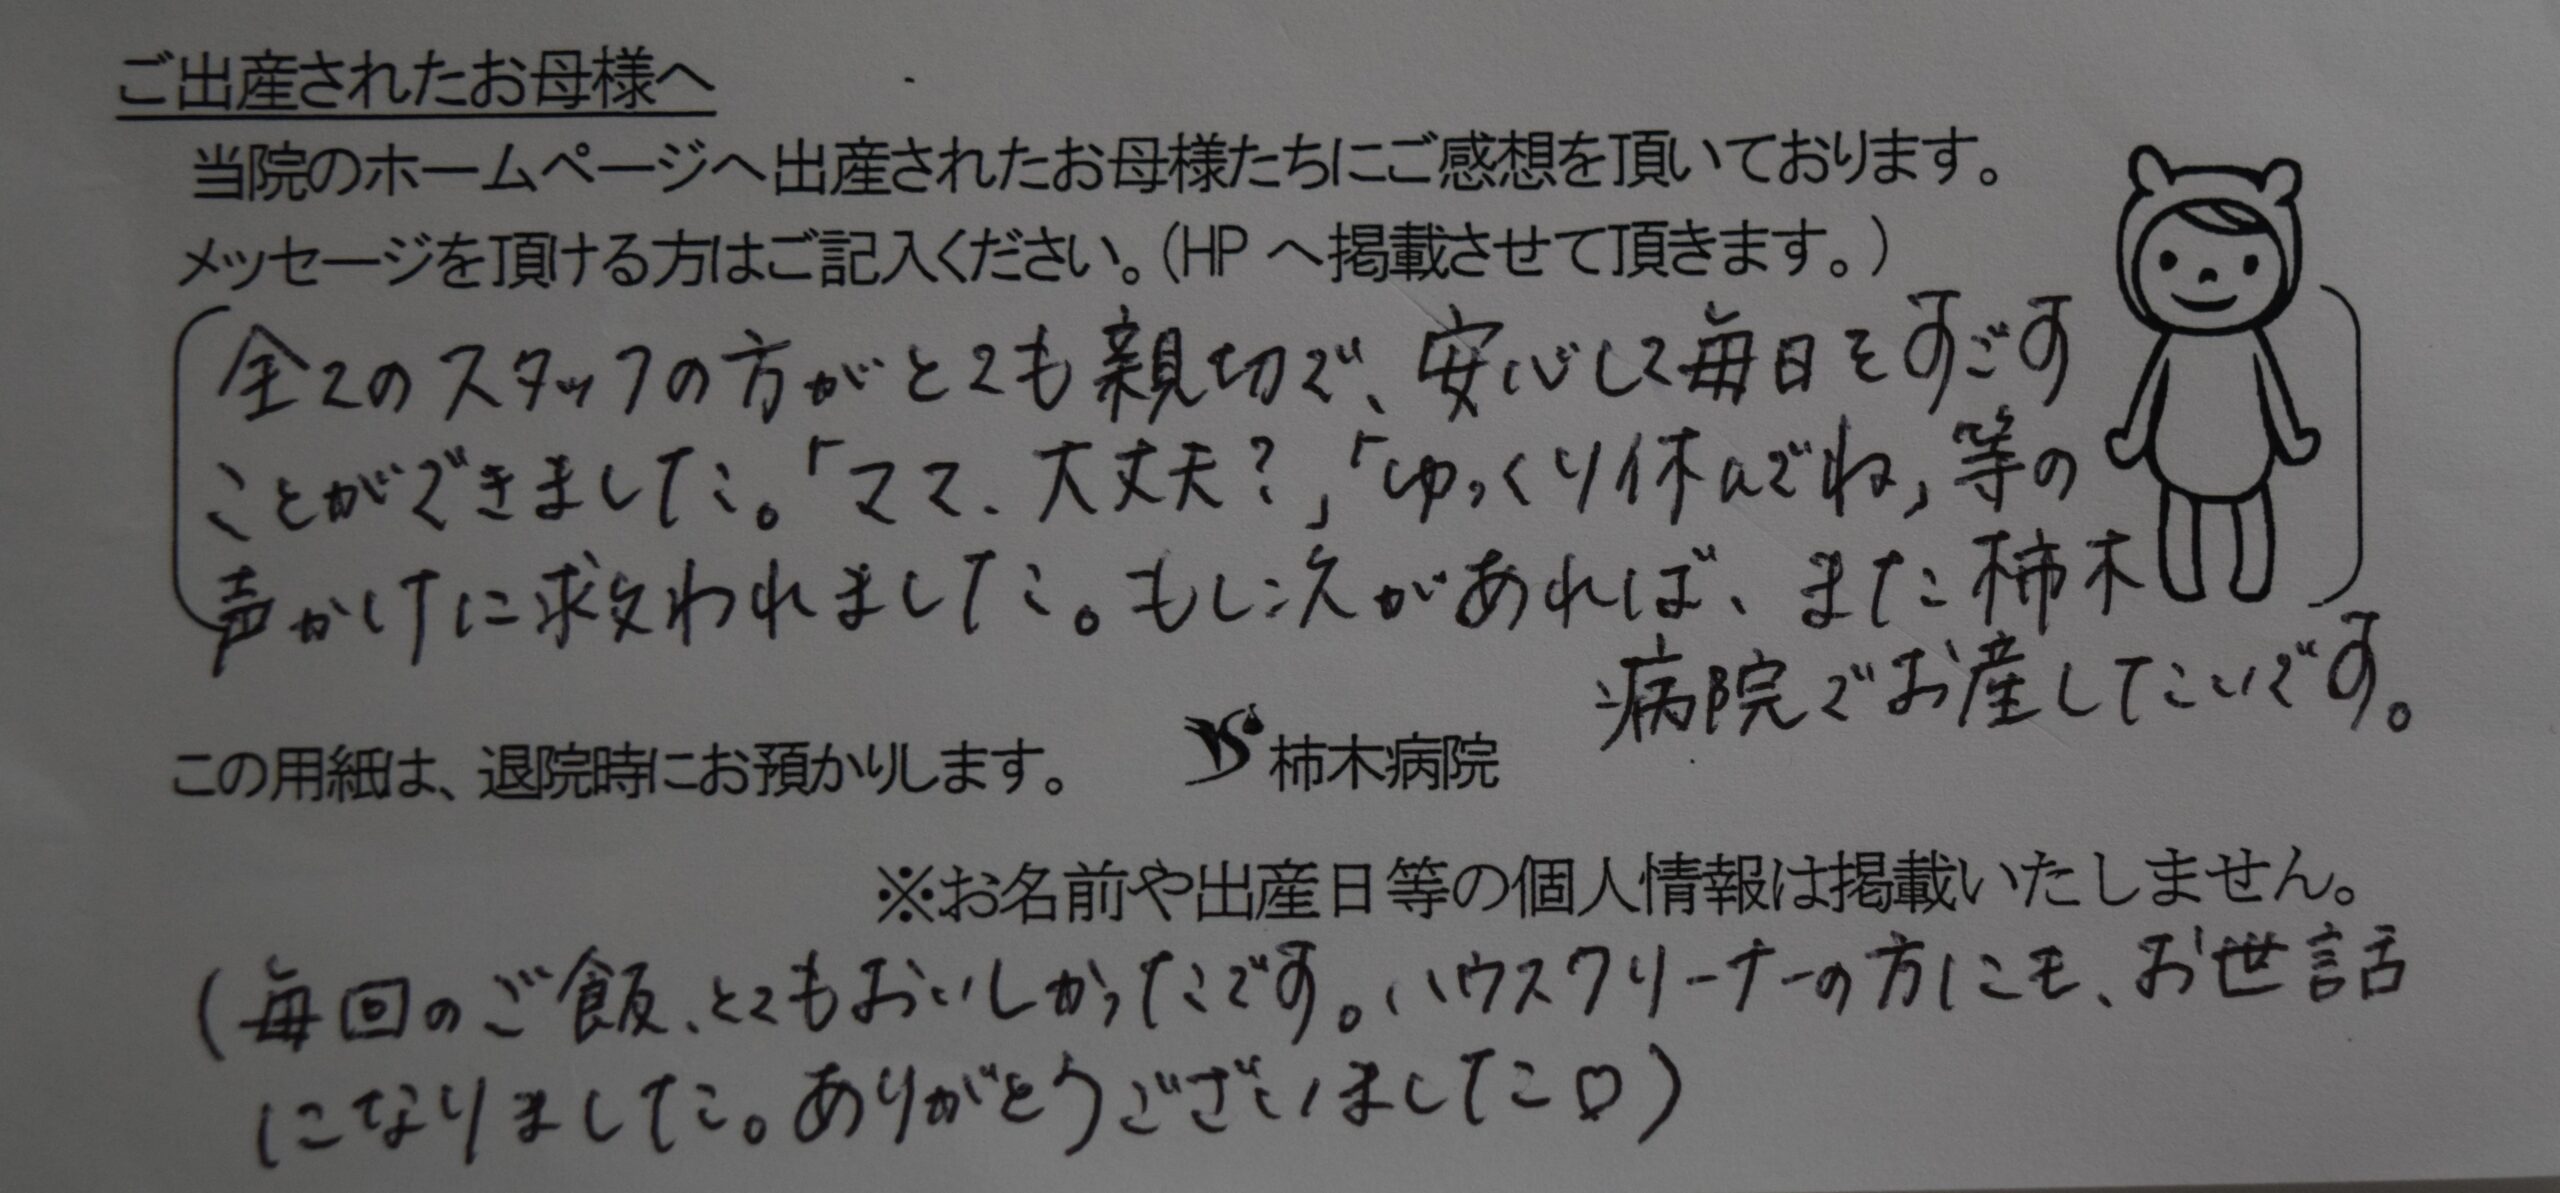 ご出産されたお母様へ
当院のホームページへ出産されたお母様たちにご感想を頂いております。
メッセージを頂ける方はご記入ください。(HP へ掲載させて頂きます。)
全てのスタッフの方がとても親切で、安心して毎日をすごす
ことができました。「ママ、大丈夫?」「ゆっくり休んでね」等の
声かけに救われました。もし次があれば、また柿木
病院でお産したいです。
この用紙は、退院時にお預かりします。 柿木病院
※お名前や出産日等の個人情報は掲載いたしません。
(毎回のご飯、とてもおいしかったです。ハウスクリーナーの方にも、お世話
になりました。ありがとうございました♡)